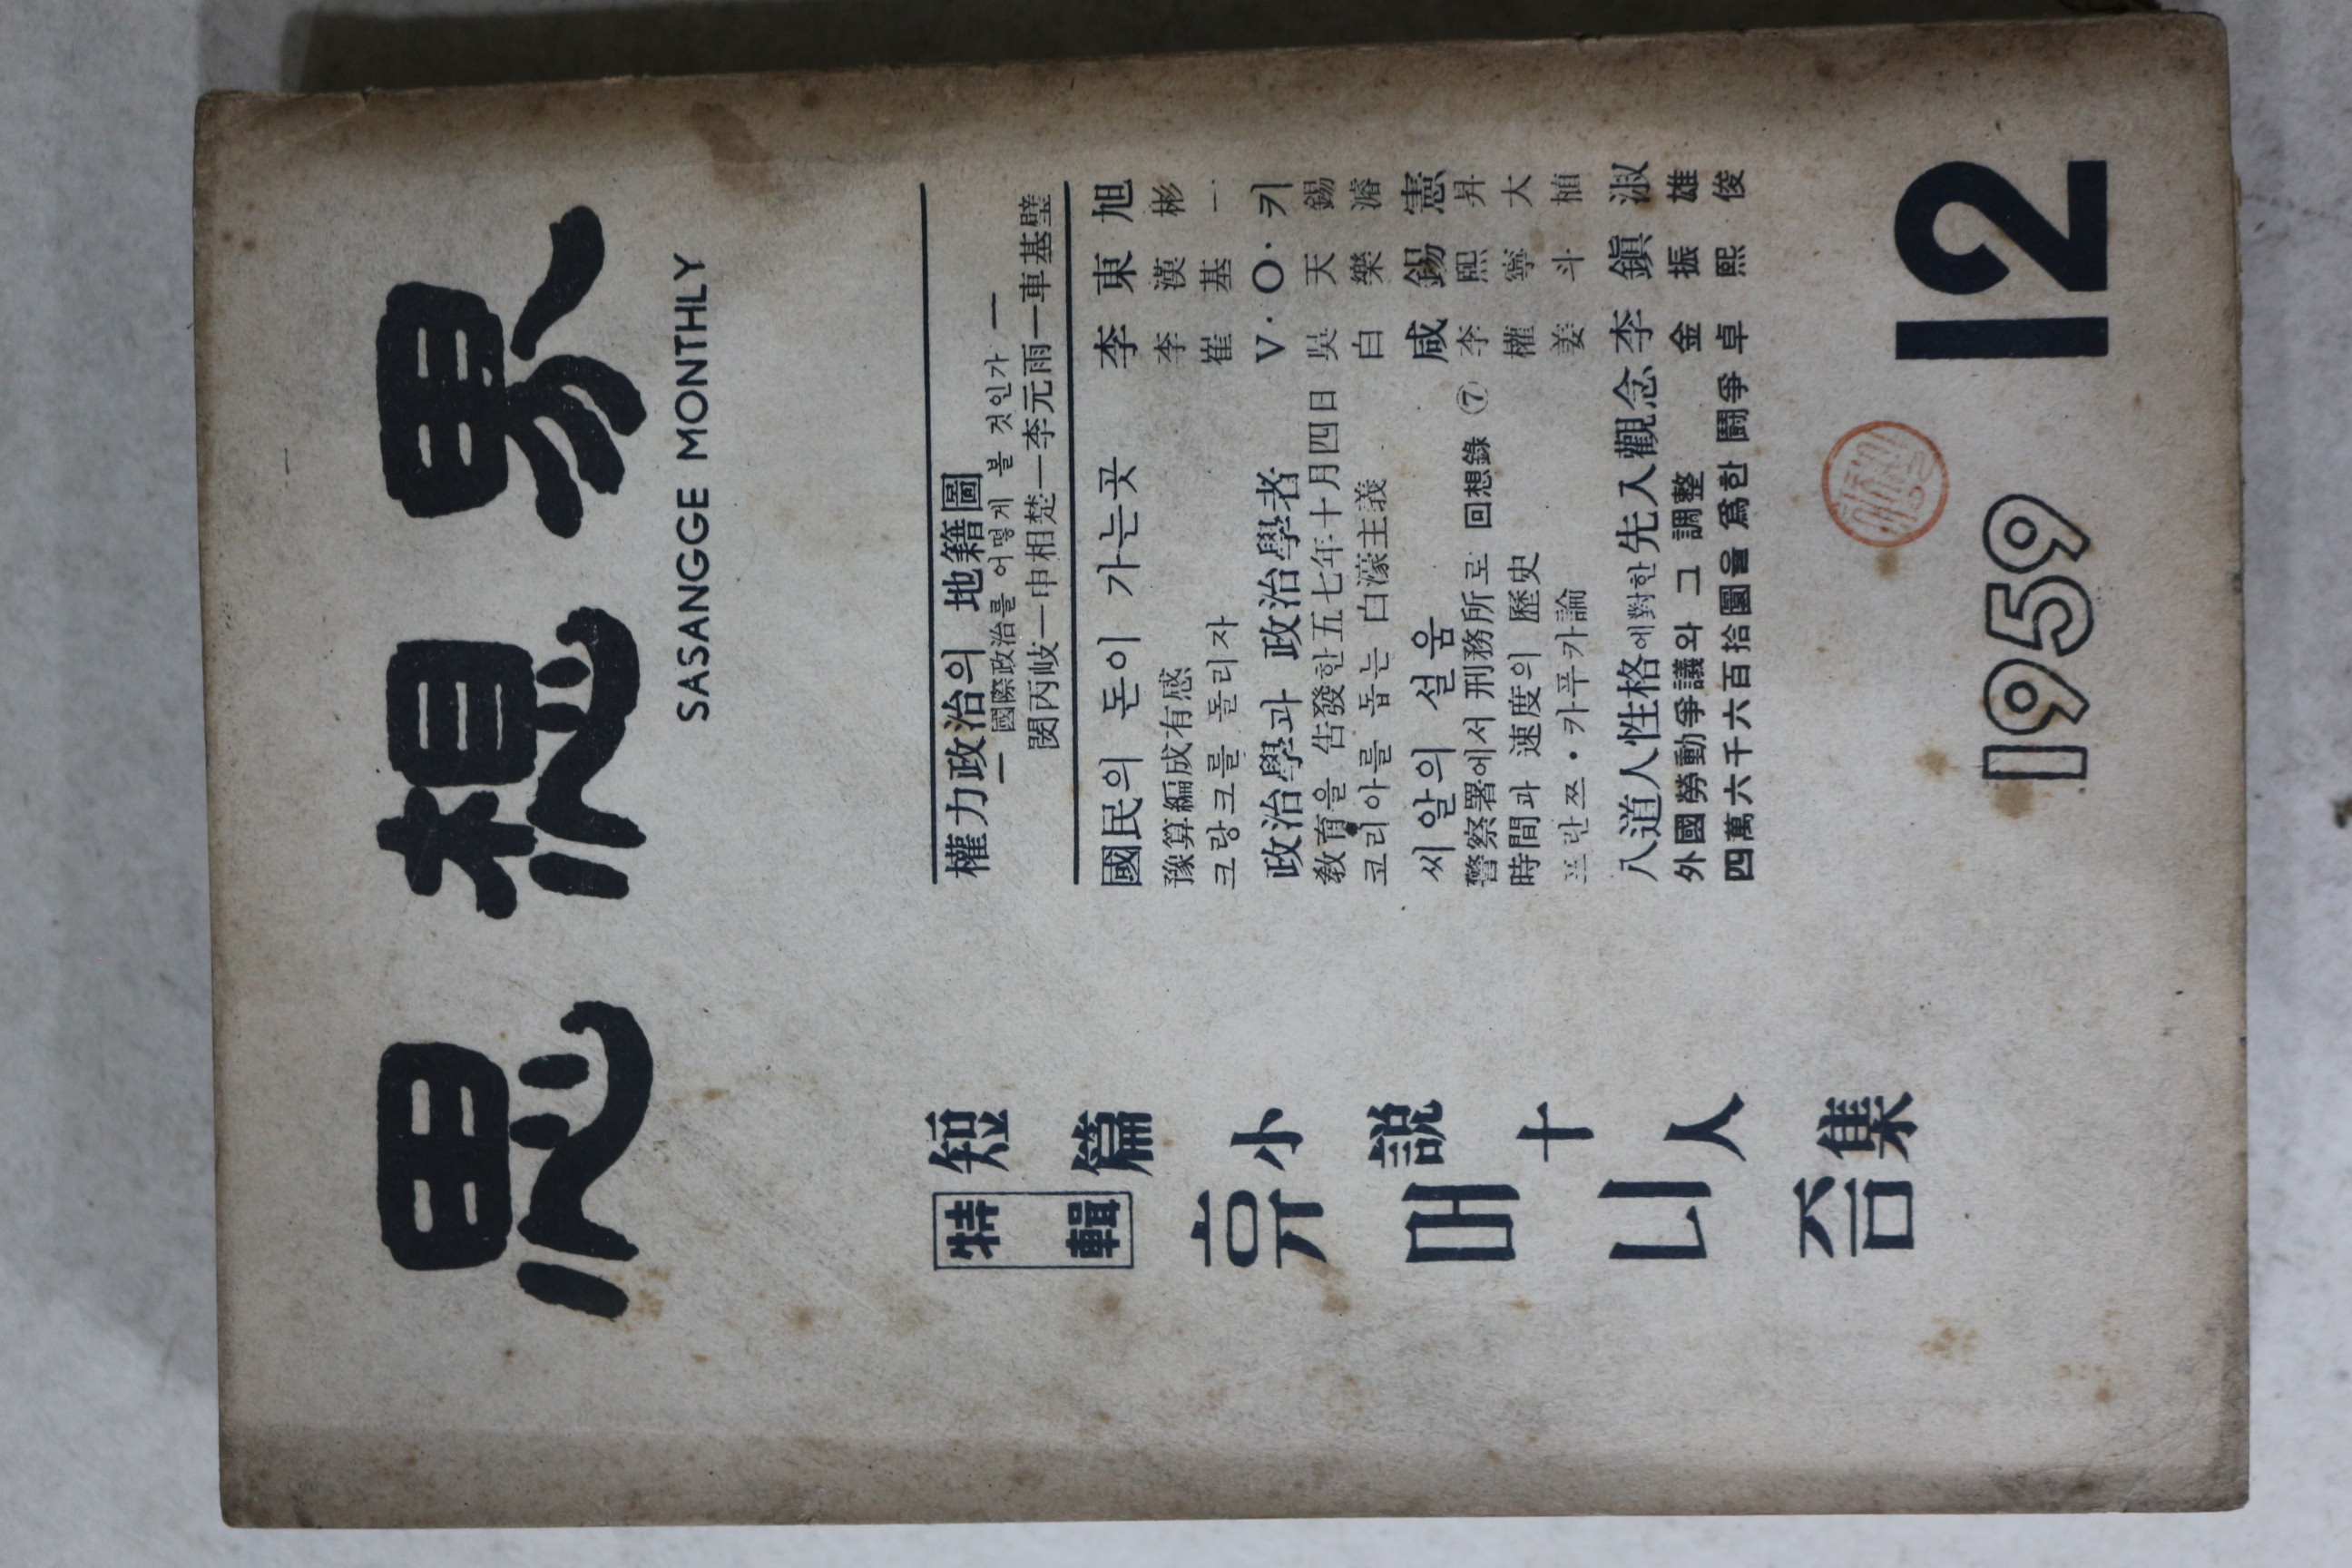 思想界
SASANGGE MONTHLY
權力政治의 地籍圖
— 國際政治를 어떻게 볼 것인가 —
閔丙岐—申相楚—李元雨—車基璧
國民의 돈이 가는곳 李東旭
豫算編成有感 李漢彬
크랑크를 돌리자 崔基一
政治學과 政治學者 V·O·키
敎育을 告發한 五七年十月四日 吳天錫
코리아를 돕는 白濠主義 白樂濬
씨알의 설움 咸錫憲
警察署에서 刑務所로 回想錄 ⑦ 李熙昇
時間과 速度의 歷史 權寧大
프란쯔·카프카論 姜斗植
八道人性格에對한先入觀念 李鎭淑
外國勞動爭議와 그 調整 金振雄
四萬六千六百拾圜을 爲한 鬪爭 卓熙俊
特輯
短篇小說十人集
휴매니즘
1959
12